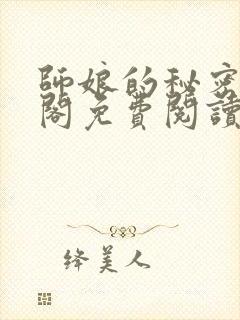 師娘的秘密
閣免費閱讀
绛美人